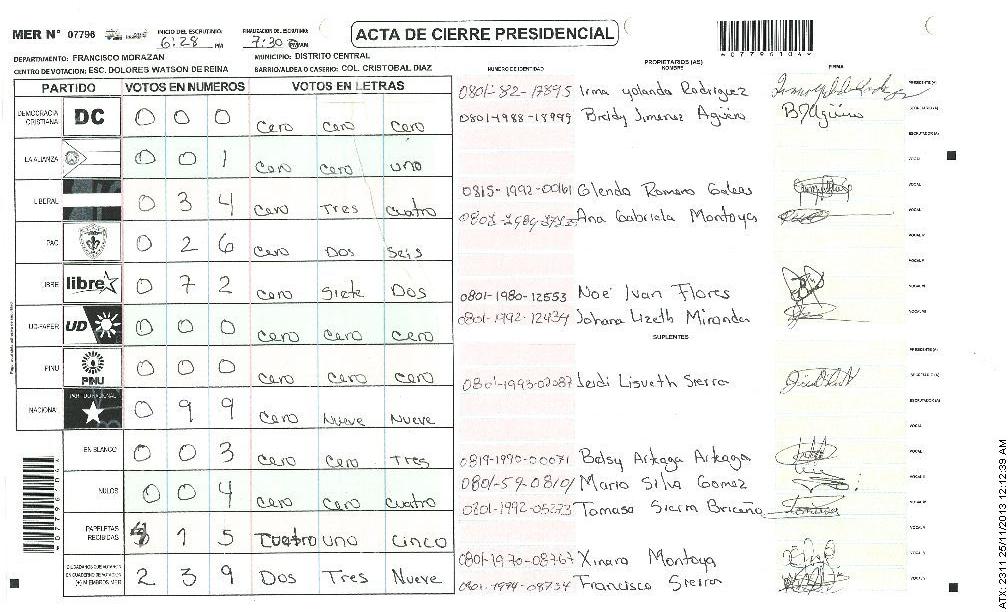 MER N° 07796
INICIO DEL ESCRUTINIO: 6:28 PM
FINALIZACION DEL ESCRUTINIO: 7:30 PM
ACTA DE CIERRE PRESIDENCIAL
07796104
DEPARTAMENTO: FRANCISCO MORAZAN
MUNICIPIO: DISTRITO CENTRAL
CENTRO DE VOTACION: ESC. DOLORES WATSON DE REINA
BARRIO/ALDEA O CASERIO: COL. CRISTOBAL DIAZ
PARTIDO VOTOS EN NUMEROS VOTOS EN LETRAS
DEMOCRACIA CRISTIANA DC 0 0 0 Cero Cero Cero
LA ALIANZA 0 0 1 Cero Cero uno
LIBERAL 0 3 4 Cero Tres Cuatro
PAC 0 2 6 Cero Dos Seis
LIBRE libre 0 7 2 Cero Siete Dos
UD-FAPER UD 0 0 0 Cero Cero Cero
PINU PINU 0 0 0 Cero Cero Cero
NACIONAL PARTIDO NACIONAL 0 9 9 Cero Nueve Nueve
EN BLANCO 0 0 3 Cero Cero Tres
NULOS 0 0 4 Cero Cero Cuatro
PAPELETAS RECIBIDAS 4 1 5 Cuatro uno Cinco
CIUDADANOS QUE VOTARON EN CUADERNO DE VOTACION (+) MIEMBROS MER 2 3 9 Dos Tres Nueve
NUMERO DE IDENTIDAD PROPIETARIOS (AS) NOMBRE FIRMA
0801-82-17895 Irma yolanda Rodriguez PRESIDENTE (A)
0801-1988-18999 Breldy Jimenez Agüero B/Agüero SECRETARIO (A)
ESCRUTADOR (A)
VOCAL
0815-1992-00161 Glenda Romero Galeas VOCAL
Ana Gabriela Montoya VOCAL
VOCAL
VOCAL
0801-1980-12553 Noé Ivan Flores VOCAL
0801-1992-12434 Johana Lizeth Miranda VOCAL
SUPLENTES
PRESIDENTE (A)
0801-1993-02087 Leidi Lisveth Sierra SECRETARIO (A)
ESCRUTADOR (A)
VOCAL
0819-1990-00071 Betsy Arteaga Arteaga VOCAL
0801-59-08101 Mario Silva Gomez VOCAL
0801-1992-05273 Tomasa Sierra Briceño Tomasa VOCAL
VOCAL
0801-1970-08767 Xinaro Montoya VOCAL
0801-1994-08734 Francisco Sierra VOCAL
07796104
ATX: 2311 25/11/2013 12:12:39 AM